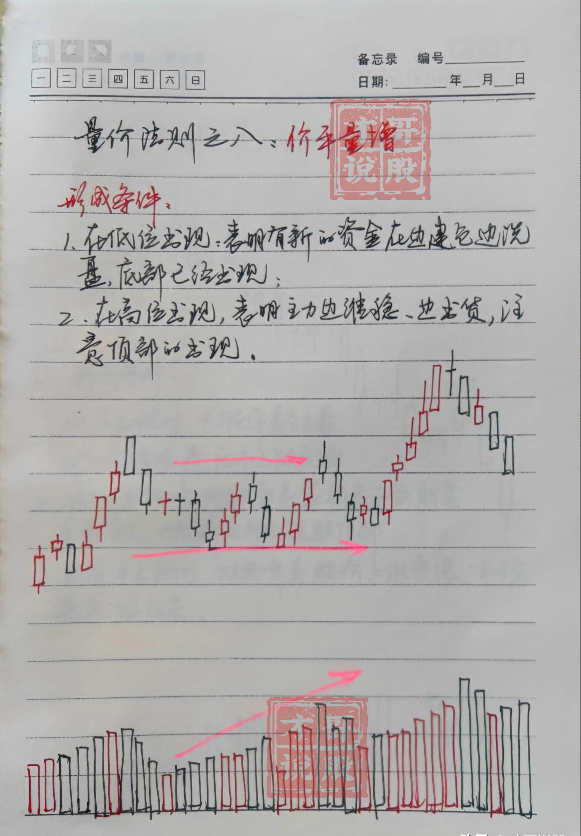 备忘录 编号
一 二 三 四 五 六 日
日期: 年 月 日
量价法则之八：价平量增
形成条件：
1. 在低位出现：表明有新的资金在边建仓边洗
盘，底部已经出现；
2. 在高位出现，表明主力边维稳、边出货，注
意顶部的出现。
哥
说股
哥
说股